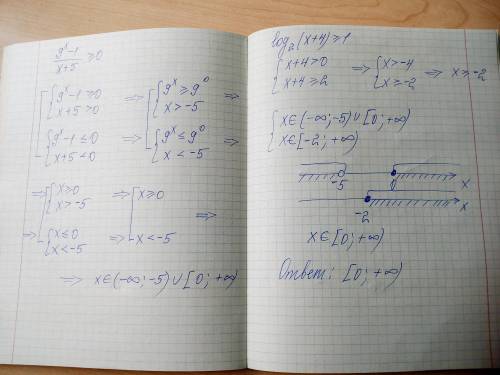 (9^x-1)/(x+5) ≥0
[ { 9^x-1 ≥0 ; x+5 >0 ⇒ [ { 9^x ≥ 9^0 ; x > -5 ⇒
{ 9^x-1 ≤0 ; x+5 <0 ⇒ { 9^x ≤ 9^0 ; x < -5 ⇒
⇒ [ { x ≥0 ; x > -5 ⇒ [ x ≥0 ⇒
⇒ { x ≤ 0 ; x < -5 ⇒ x < -5
⇒ x∈(-∞; -5)∪[0; +∞)
log₂(x+4) ≥1
{ x+4>0 ; x+4≥2 ⇒ { x>-4 ; x≥-2 ⇒ x ≥ -2
{ x∈(-∞; -5)∪[0; +∞)
x∈[-2; +∞)
-5 0 x
-2 x
x∈[0; +∞)
Ответ: [0; +∞)